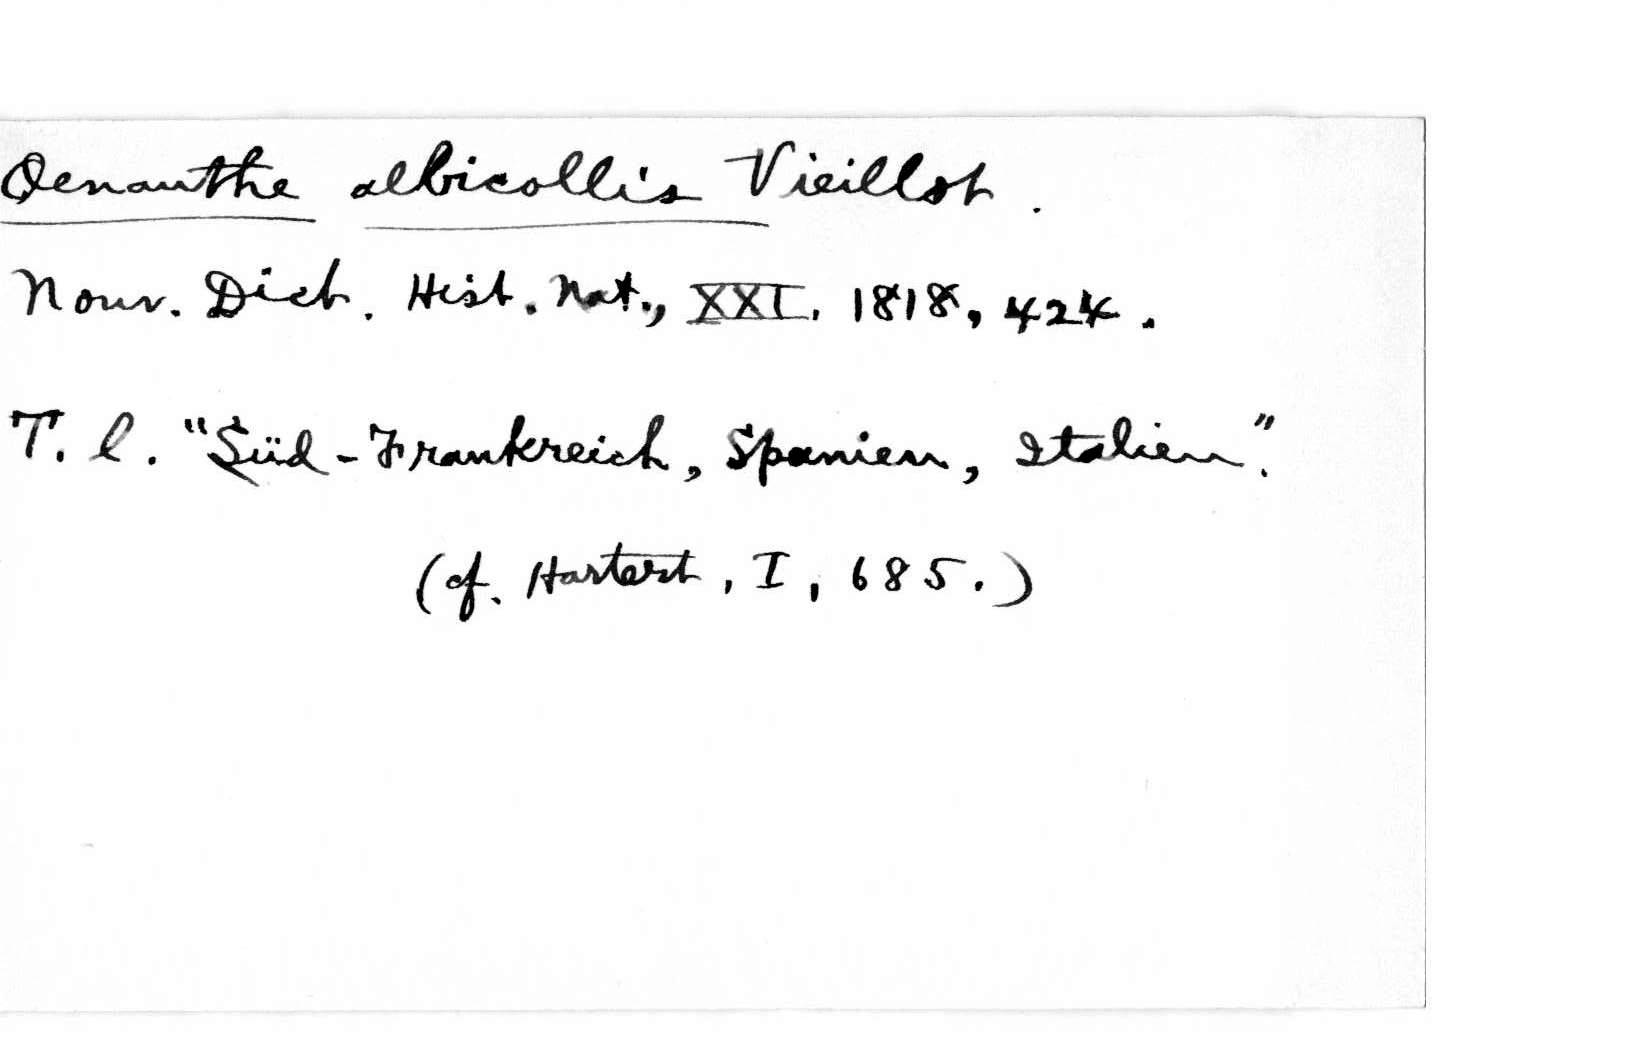 Oenanthe albicollis Vieillot.
Nouv. Dict. Hist. Nat., XXI, 1818, 424.
T. l. "Süd-Frankreich, Spanien, Italien".
(cf. Hartert, I, 685.)